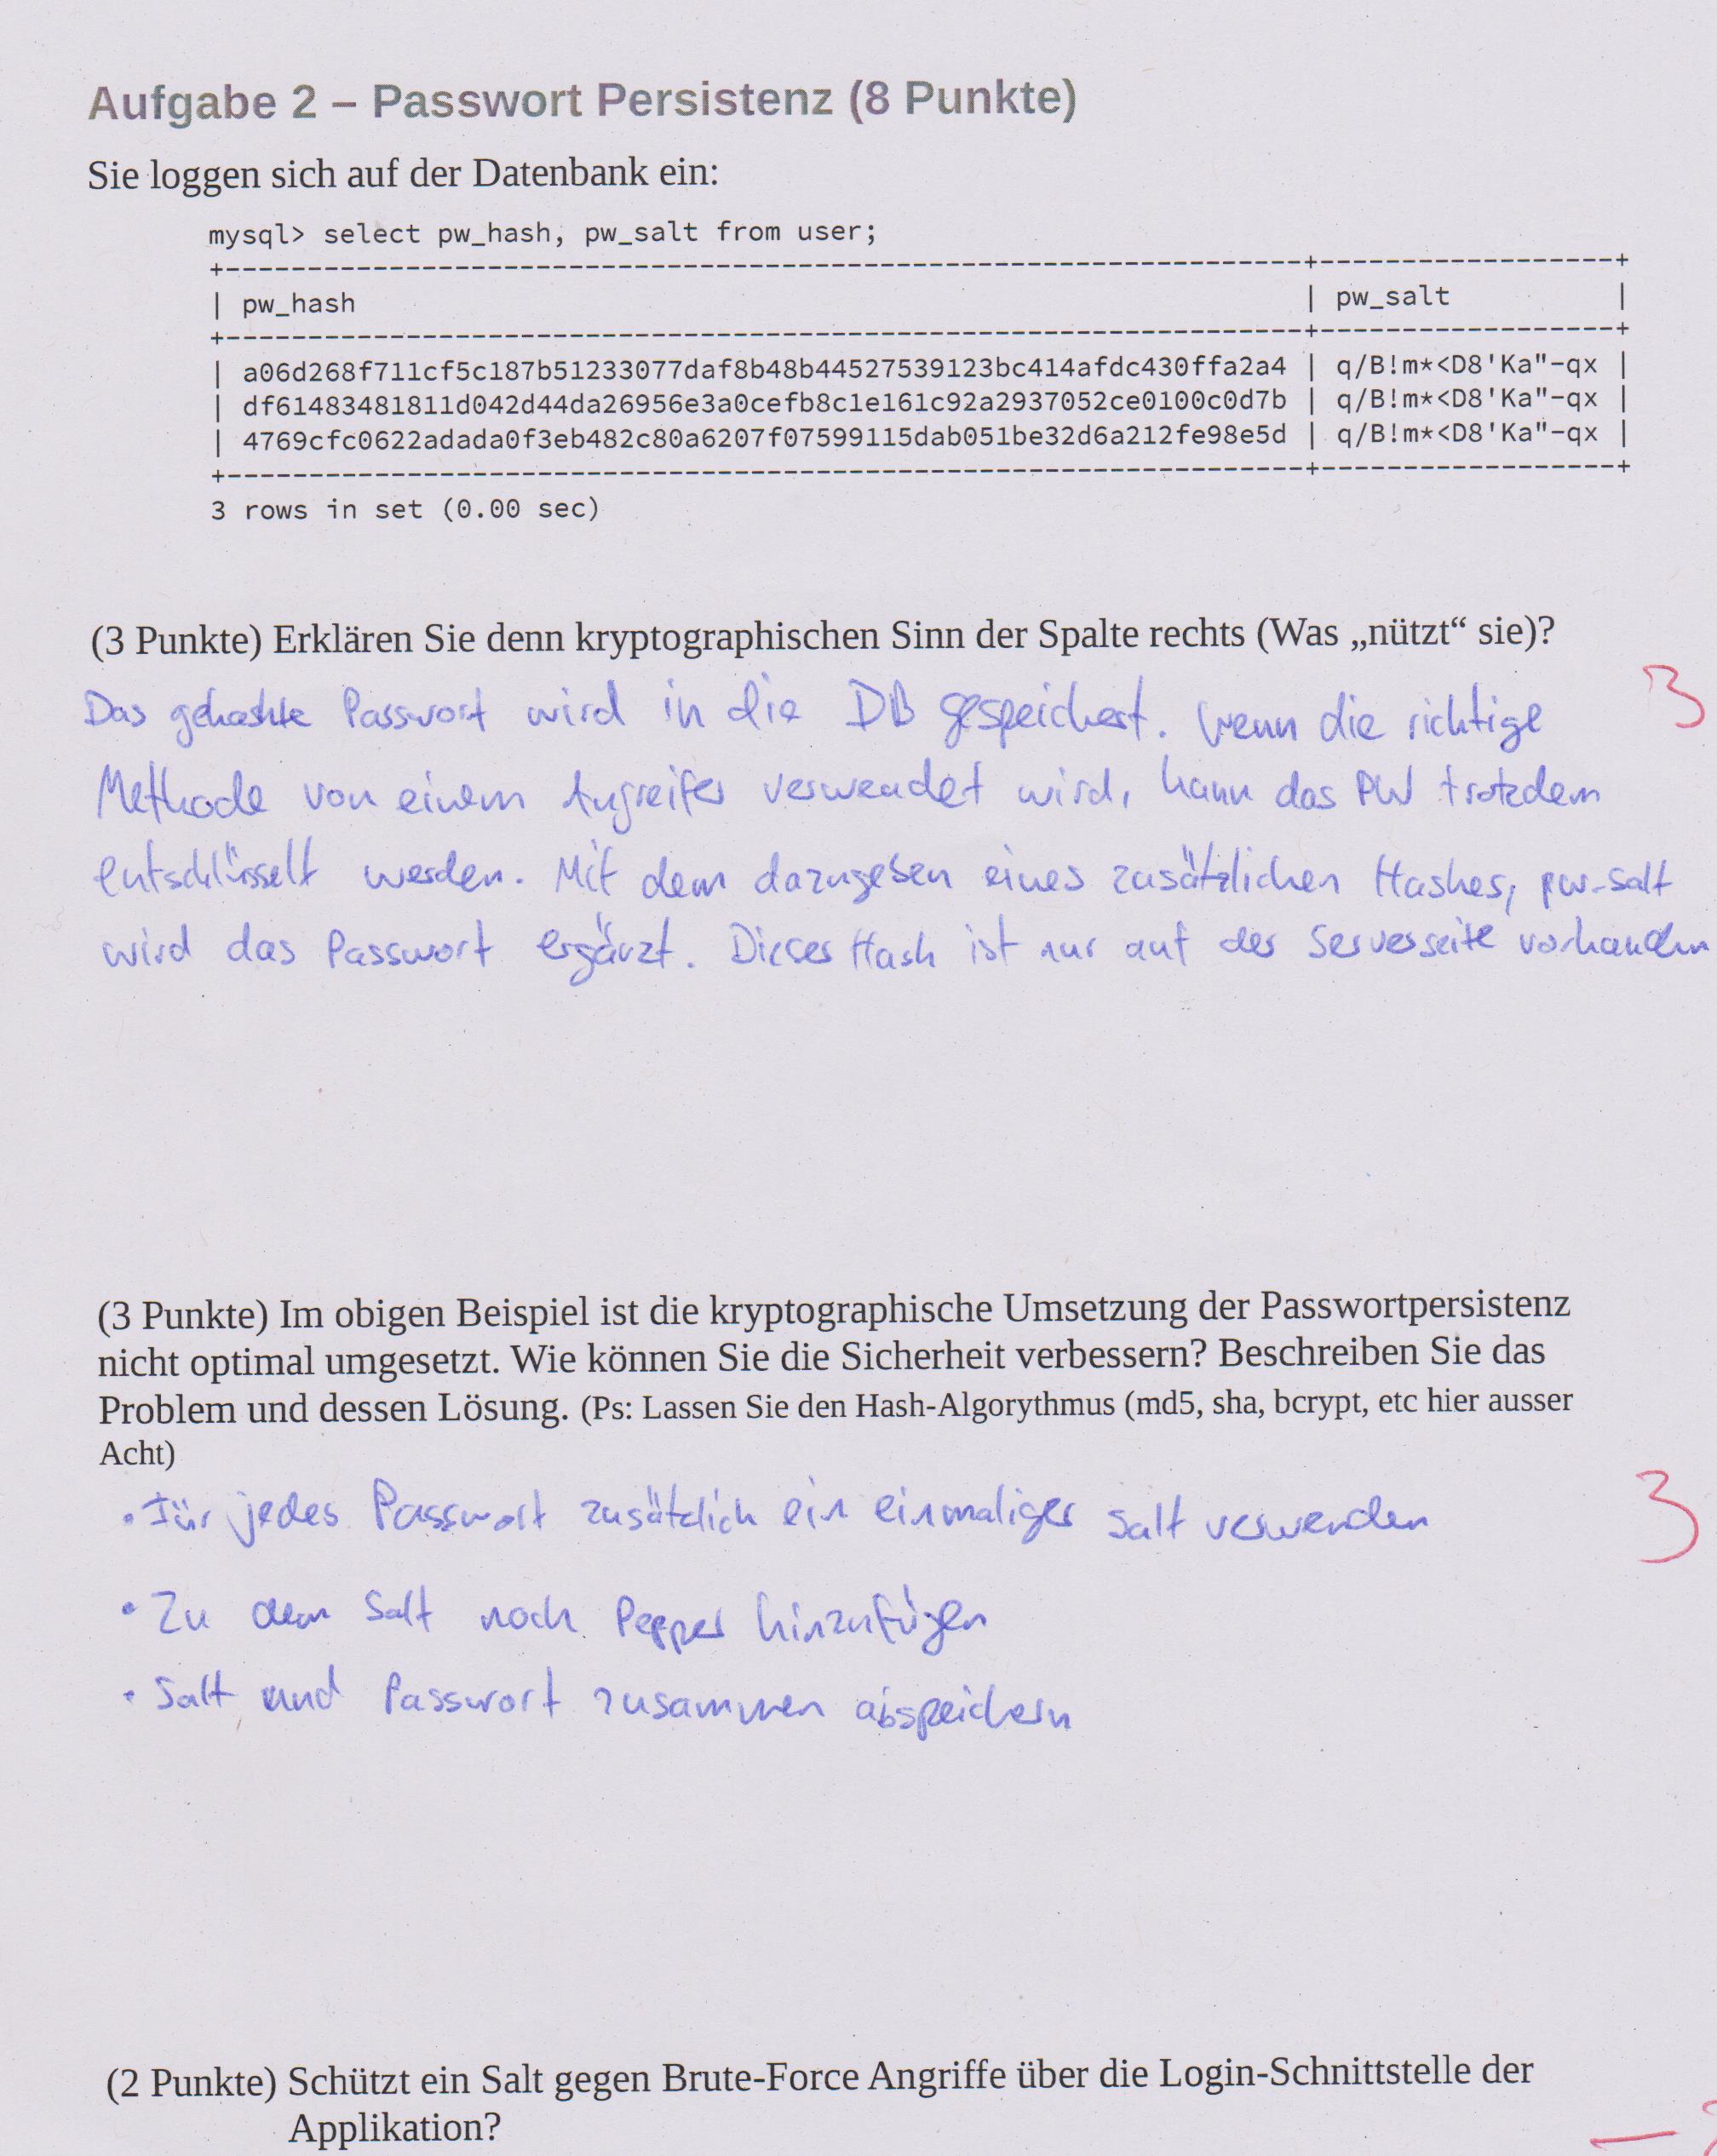 Aufgabe 2 – Passwort Persistenz (8 Punkte)
Sie loggen sich auf der Datenbank ein:
mysql> select pw_hash, pw_salt from user;
+------------------------------------------------------------------+------------------+
| pw_hash | pw_salt |
+------------------------------------------------------------------+------------------+
| a06d268f711cf5c187b51233077daf8b48b44527539123bc414afdc430ffa2a4 | q/B!m*<D8'Ka"-qx |
| df61483481811d042d44da26956e3a0cefb8c1e161c92a2937052ce0100c0d7b | q/B!m*<D8'Ka"-qx |
| 4769cfc0622adada0f3eb482c80a6207f07599115dab051be32d6a212fe98e5d | q/B!m*<D8'Ka"-qx |
+------------------------------------------------------------------+------------------+
3 rows in set (0.00 sec)
(3 Punkte) Erklären Sie denn kryptographischen Sinn der Spalte rechts (Was „nützt“ sie)?
3
Das gehashte Passwort wird in die DB gespeichert. Wenn die richtige
Methode von einem Angreifer verwendet wird, kann das PW trotzdem
entschlüsselt werden. Mit dem dazugeben eines zusätzlichen Hashes, pw-salt
wird das Passwort ergänzt. Dieser Hash ist nur auf der Serverseite vorhanden
(3 Punkte) Im obigen Beispiel ist die kryptographische Umsetzung der Passwortpersistenz
nicht optimal umgesetzt. Wie können Sie die Sicherheit verbessern? Beschreiben Sie das
Problem und dessen Lösung. (Ps: Lassen Sie den Hash-Algorythmus (md5, sha, bcrypt, etc hier ausser
Acht)
• Für jedes Passwort zusätzlich ein einmaliger Salt verwenden
3
• Zu dem Salt noch Pepper hinzufügen
• Salt und Passwort zusammen abspeichern
(2 Punkte) Schützt ein Salt gegen Brute-Force Angriffe über die Login-Schnittstelle der
Applikation?